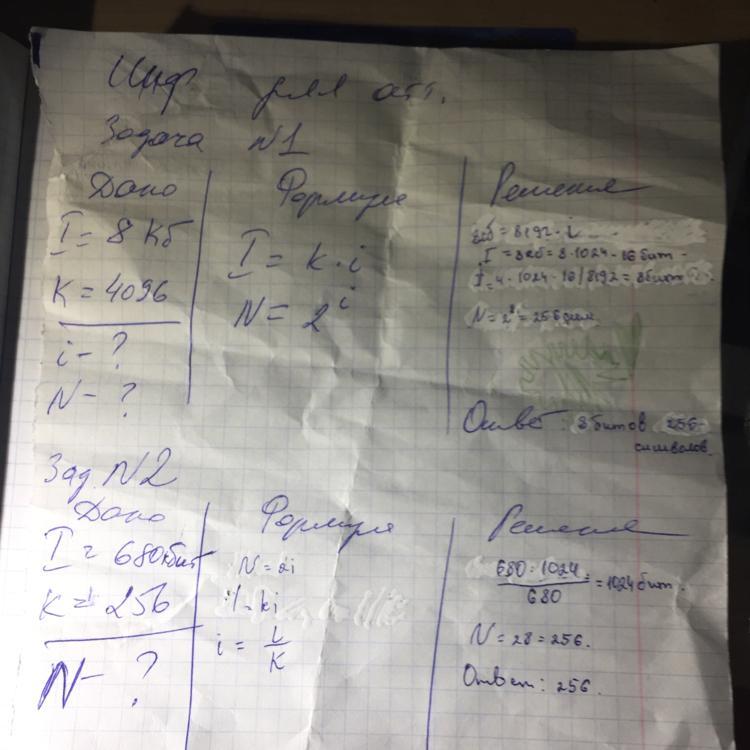 Инф для атт.
Задача N1
Дано
I = 8 Кб
K = 4096
i - ?
N - ?
Формулы
I = k · i
N = 2^i
Решение
= 8192 · i
I = 8кб = 8 · 1024 · 16 бит
I = 4 · 1024 · 16 / 8192 = 8бит
N = 2^8 = 256 сим.
Ответ: 8 битов 256
символов.
Зад. N2
Дано
I = 680кбит
K = 256
N - ?
Формулы
N = 2i
I = ki
i = I/K
Решение
680 · 1024 / 680 = 1024 бит.
N = 28 = 256.
Ответ: 256.